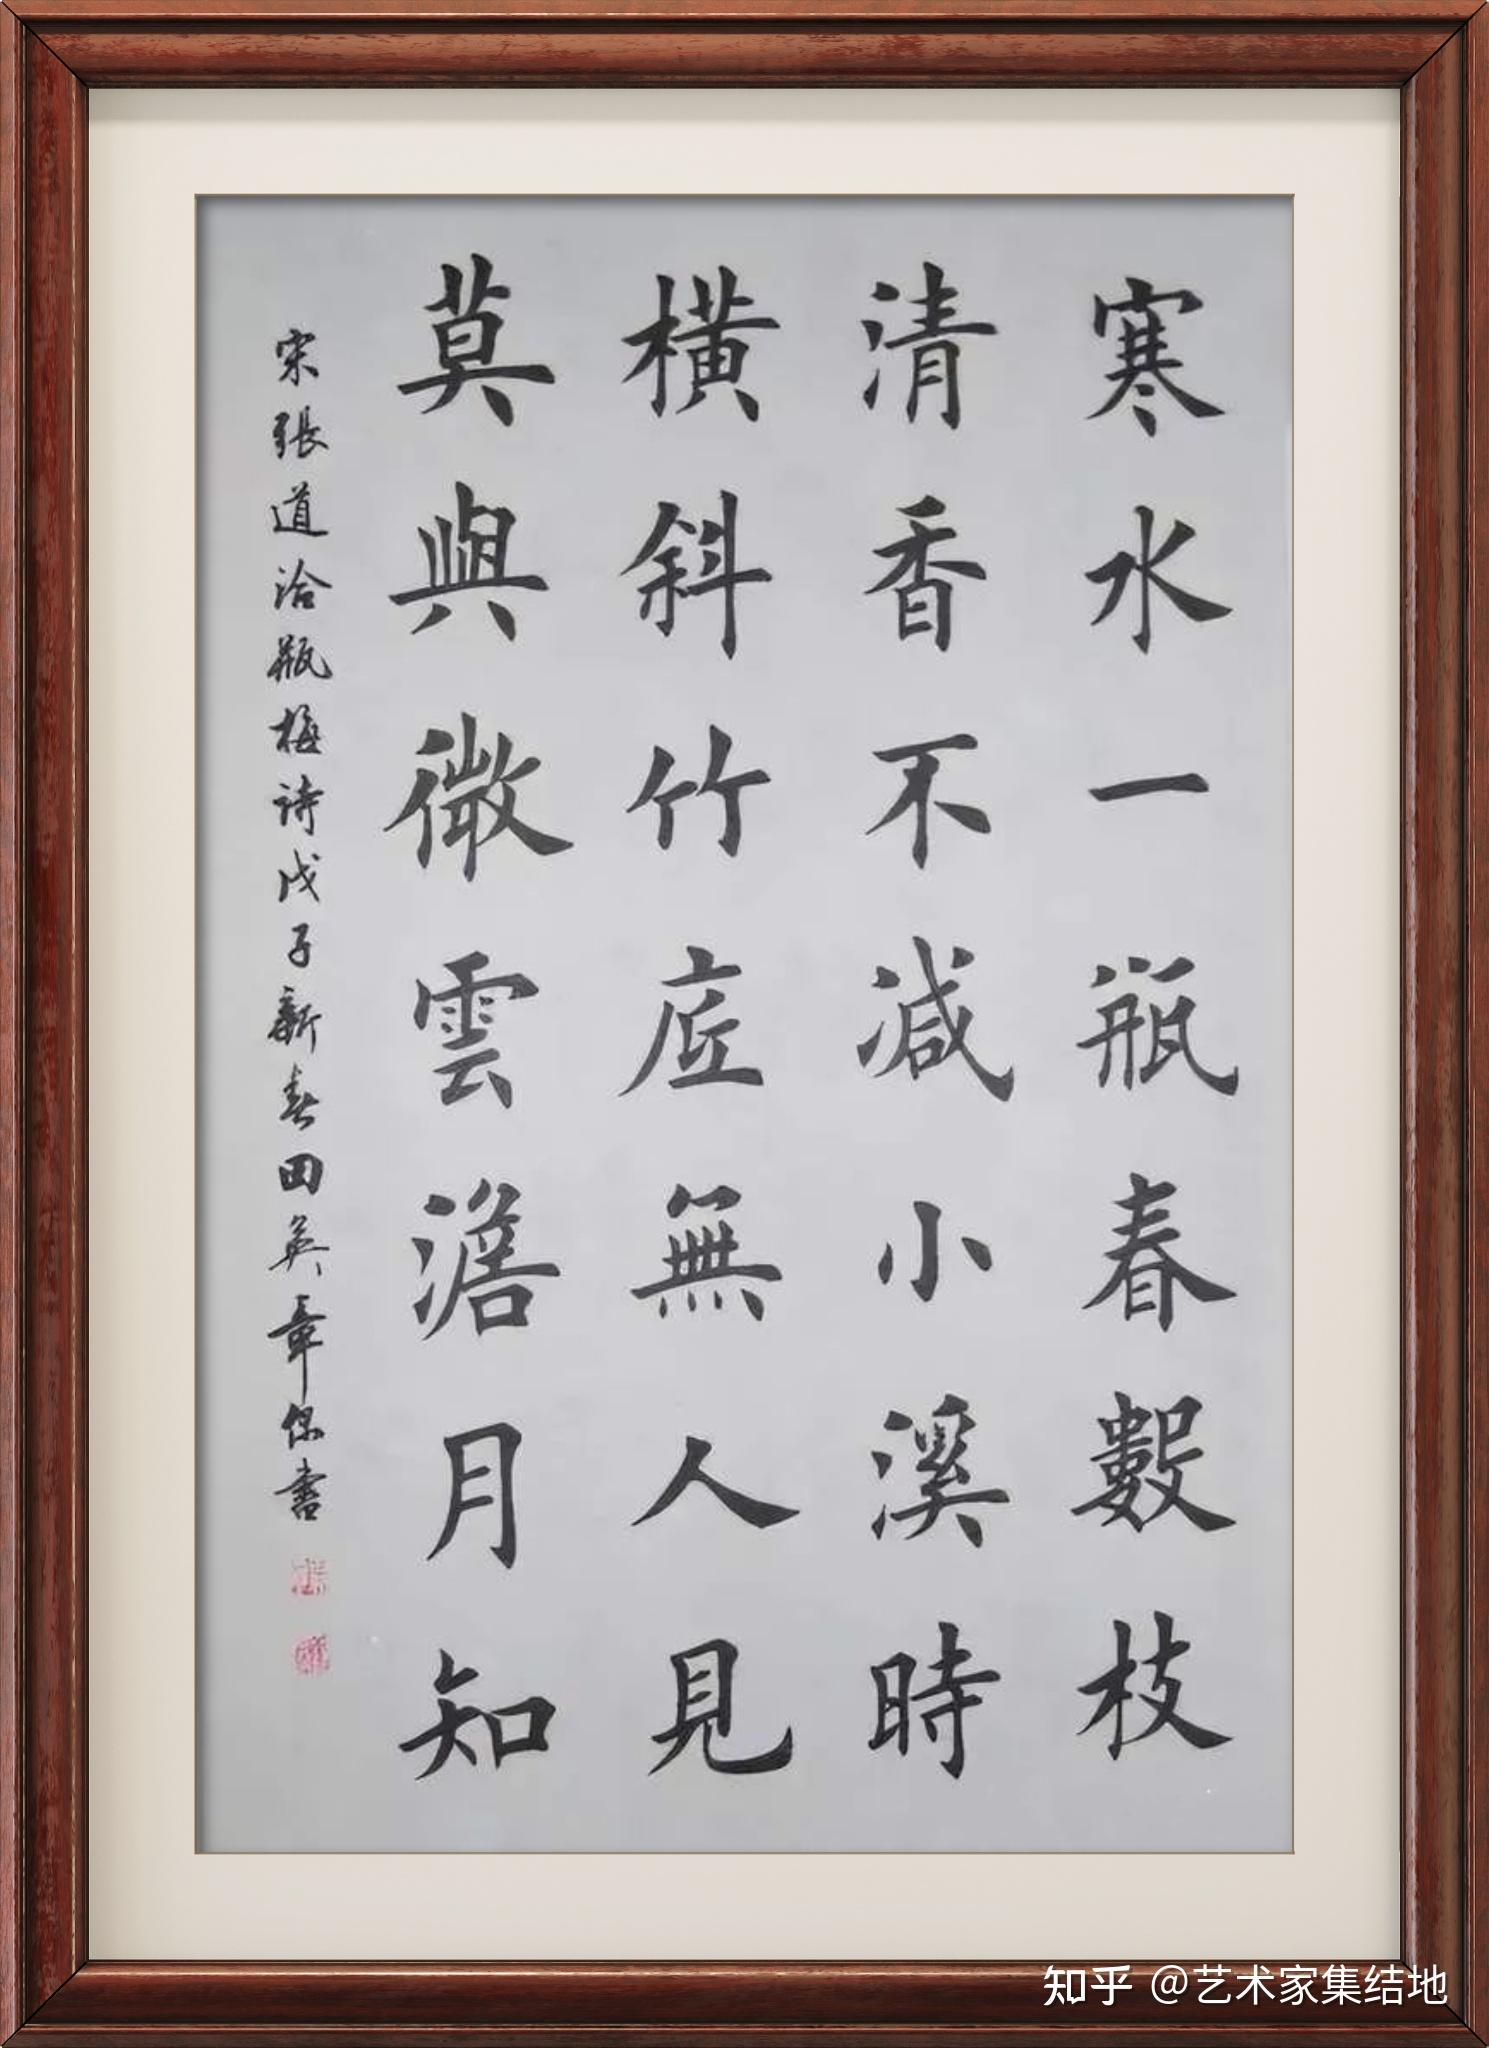 寒水一瓶春數枝
清香不減小溪時
橫斜竹底無人見
莫與微雲澹月知
宋張道洽瓶梅詩戊子新春田英章保書
知乎 @艺术家集结地